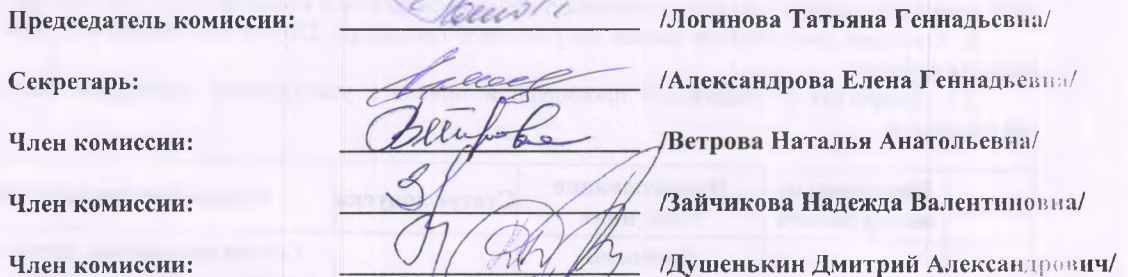 Председатель комиссии: /Логинова Татьяна Геннадьевна/
Секретарь: /Александрова Елена Геннадьевна/
Член комиссии: Ветрова /Ветрова Наталья Анатольевна/
Член комиссии: /Зайчикова Надежда Валентиновна/
Член комиссии: /Душенькин Дмитрий Александрович/